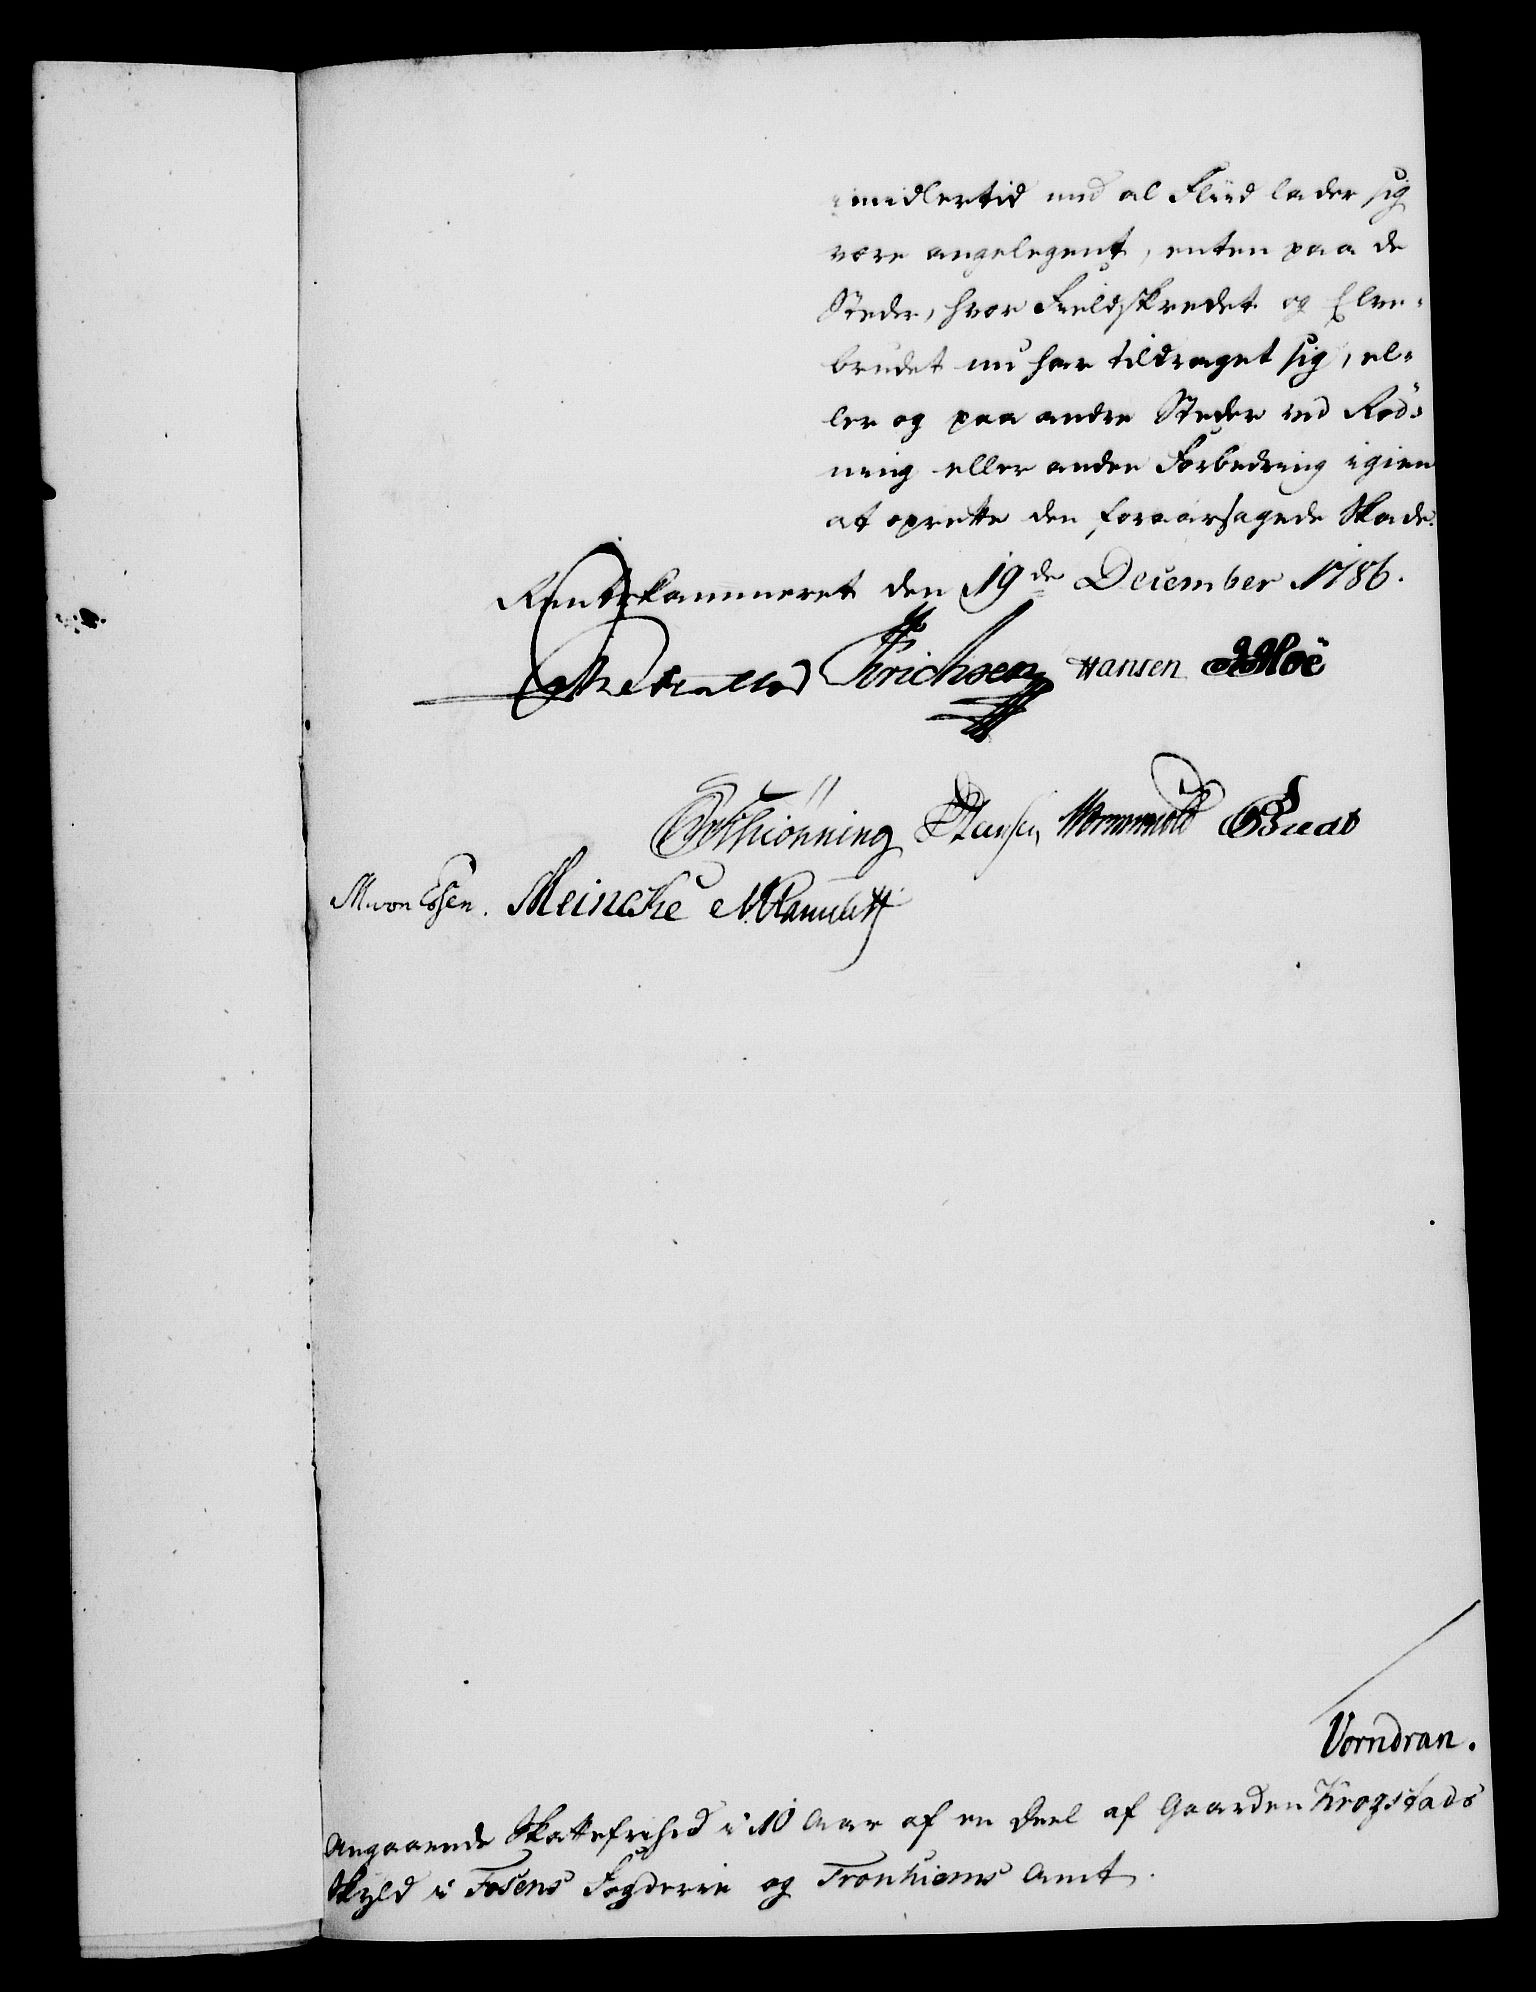 imidlertid med al Fliid lader sig
være angelegent, enten paa de
Steder, hvor Fieldskredet og Elve-
brudet nu har tildraget sig, el-
ler og paa andre Steder ved Rød-
ning eller anden Forbedring igien
at oprette den foraarsagede Skade.
Rentekammeret den 19de December 1786.
Erichsen Hansen
Schiönning Wormskiold
M. von Essen. Meincke
Vorndran.
Angaaende Skattefrihed i 10 Aar af en Deel af Gaarden Krogstads
Skyld i Fosens Fogderie og Tronhiems Amt.